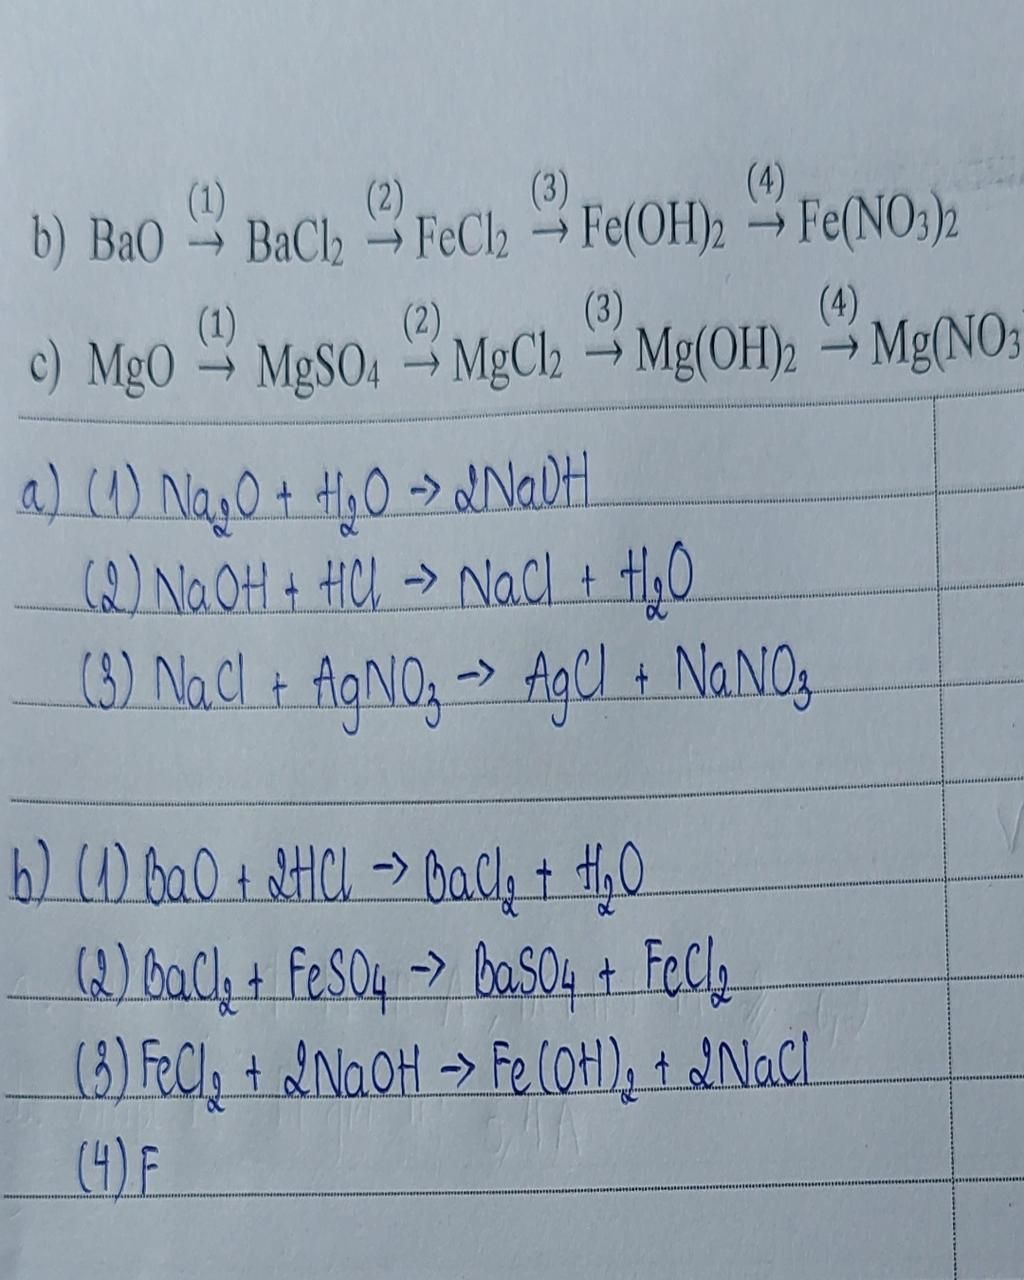 b) BaO (1)→ BaCl₂ (2)→ FeCl₂ (3)→ Fe(OH)₂ (4)→ Fe(NO₃)₂
c) MgO (1)→ MgSO₄ (2)→ MgCl₂ (3)→ Mg(OH)₂ (4)→ Mg(NO₃
a) (1) Na₂O + H₂O → 2NaOH
(2) NaOH + HCl → NaCl + H₂O
(3) NaCl + AgNO₃ → AgCl + NaNO₃
b) (1) BaO + 2HCl → BaCl₂ + H₂O
(2) BaCl₂ + FeSO₄ → BaSO₄ + FeCl₂
(3) FeCl₂ + 2NaOH → Fe(OH)₂ + 2NaCl
(4) F